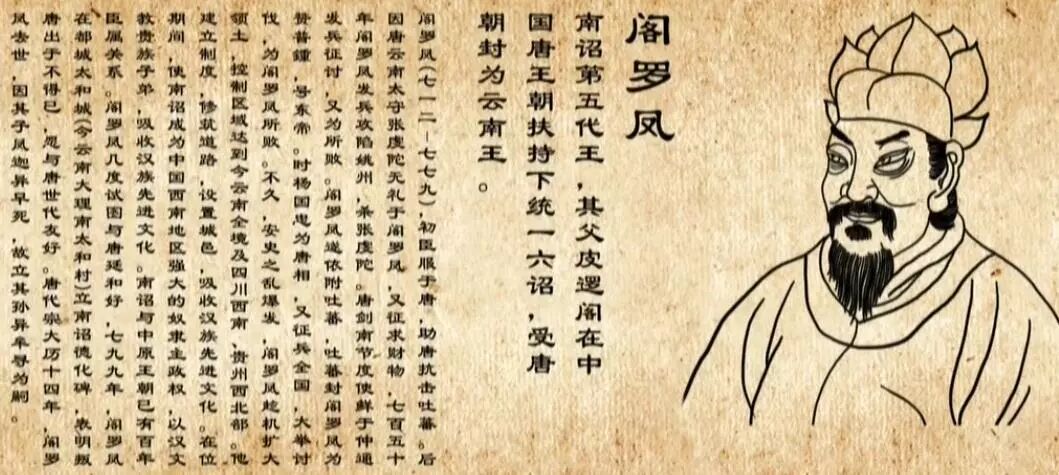 阁罗凤
南诏第五代王，其父皮逻阁在中
国唐王朝扶持下统一六诏，受唐
朝封为云南王。
阁罗凤(七一二－七七九)，初臣服于唐，助唐抗击吐蕃。后
因唐云南太守张虔陀无礼于阁罗凤，又征求财物，七百五十
年阁罗凤发兵攻陷姚州，杀张虔陀。唐剑南节度使鲜于仲通
发兵征讨，又为所败。阁罗凤遂依附吐蕃，吐蕃封阁罗凤为
赞普鍾，号东帝。时杨国忠为唐相，又征兵全国，大举讨
伐，为阁罗凤所败。不久，安史之乱爆发，阁罗凤趁机扩大
领土，控制区域达到今云南全境及四川西南、贵州西北部。他
建立制度，修筑道路，设置城邑，吸收汉族先进文化。在位
期间，使南诏成为中国西南地区强大的奴隶主政权，以汉文
教贵族子弟，吸收汉族先进文化。南诏与中原王朝已有百年
臣属关系。阁罗凤几度试图与唐廷和好，七九九年，阁罗凤
在都城太和城(今云南大理南太和村)立南诏德化碑，表明叛
唐出于不得已，愿与唐世代友好。唐代宗大历十四年，阁罗
凤去世，因其子凤迦异早死，故立其孙异牟寻为嗣。